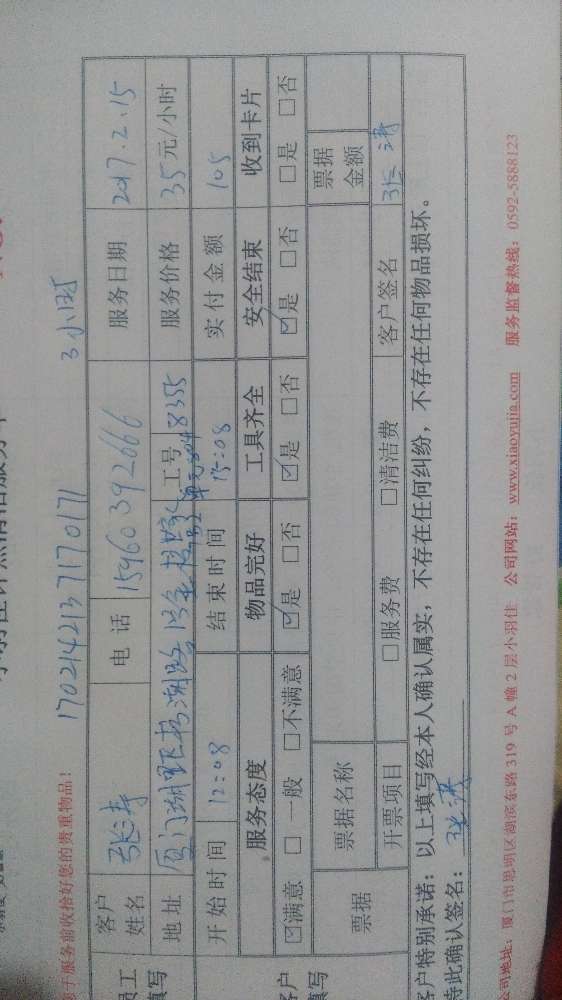 于服务前收拾好您的贵重物品！
1702142137170171 3小时
员工
填写
客户
姓名 张涛 电 话 15960392666 服务日期 2017.2.15
地 址 厦门湖 工号 8355 服务价格 35元/小时
开 始 时 间 12:08 结 束 时 间 15:08 实 付 金 额 105
服务态度 物品完好 工具齐全 安全结束 收到卡片
☑满意 □ 一般 □不满意 ☑是 □否 ☑是 □否 ☑是 □否 □是 □否
客户
填写
票据 票据名称 票据
金额
开票项目 □服务费 □清洁费 客户签名 张涛
客户特别承诺：以上填写经本人确认属实，不存在任何纠纷，不存在任何物品损坏。
特此确认签名： 张涛
公司地址：厦门市思明区湖滨东路 319 号 A 幢 2 层小羽佳 公司网站：www.xiaoyujia.com 服务监督热线：0592-5888123